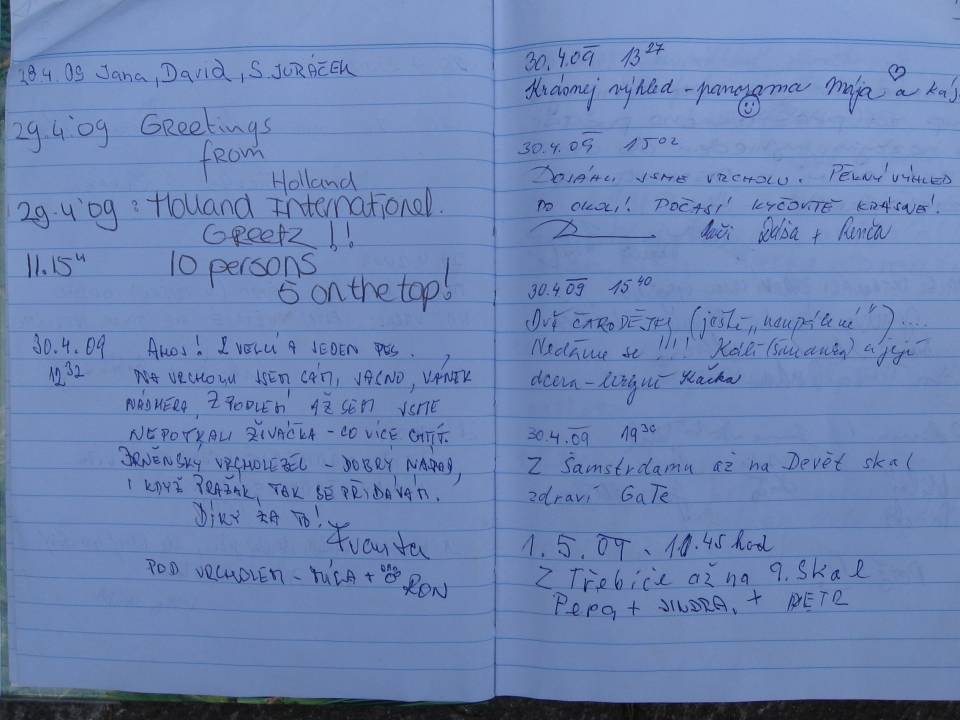 28.4.09 Jana, David, S. JURÁČEK
29.4'09 Greetings
from
Holland
29.4'09: Holland International.
Greetz!!
11.15 u 10 persons
5 on the top!
30.4.09 AHOJ! 2 VELCÍ A JEDEN PES.
12 32 NA VRCHOLU JSEM SÁM, JASNO, VÁNEK
NÁDHERA, Z PODLESÍ AŽ SEM JSME
NEPOTKALI ŽIVÁČKA - CO VÍCE CHTÍT.
BRNĚNSKÝ VRCHOLEZEL - DOBRÝ NÁPAD,
I KDYŽ PRAŽÁK, TAK SE PŘIDÁVÁM.
DÍKY ZA TO!
Franta
POD VRCHOLEM - MÍŠA + RON
30.4.09 13 27
Krásnej výhled - panorama Mája a
30.4.09 15 02
DOSÁHLI JSME VRCHOLU. PĚKNÝ VÝHLED
PO OKOLÍ! POČASÍ KÝČOVITĚ KRÁSNÉ!
Dáša + Renča
30.4.09 15 40
DVĚ ČARODĚJKY (ještě „neupálené")....
Nedáme se!!!! a její
dcera - Kačka
30.4.09 19 30
Z Šamstrdamu až na Devět skal
zdraví GaTe
1.5.09. 11.45 hod
Z Třebíče až na 9. Skal
Pepa + JINDRA, + PETR